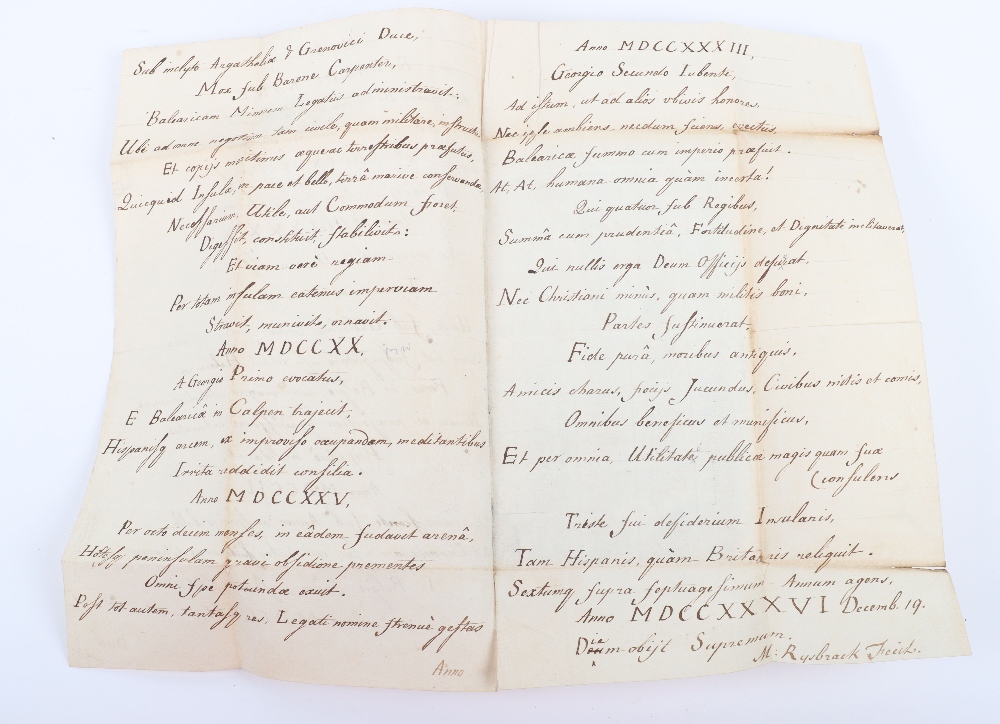 Sub inclyto Argatheliæ & Grenovici Duce,
Mox sub Barone Carpenter,
Balearicam Minorem Legatus administravit:
Ubi ad omne negotium tam civile, quam militare, instructus
Et copijs maritimis æque ac terrestribus præfectus,
Quicquid Insulæ, in pace et bello, terrâ marive conservandæ
Necessarium, Utile, aut Commodum foret,
Digessit, constituit, stabilivit:
Et viam verè regiam
Per totam insulam eatenus imperviam
Stravit, munivit, ornavit.
Anno MDCCXX,
A Georgio Primo evocatus,
E Balearicâ in Calpen trajecit,
Hispanisq arcem, ex improviso occupandam, meditantibus
Irrita reddidit consilia.
Anno MDCCXXV,
Per octo decim menses, in eâdem sudavit arenâ,
Hostesq peninsulam gravi obsidione prementes
Omni spe potiundæ exuit.
Post tot autem, tantasq res, Legati nomine strenuè gestas
Anno
Anno MDCCXXXIII,
Georgio Secundo Iubente,
Ad issum, ut ad aliòs ubivis honores,
Nec ipse ambiens necdum sciens, evectus,
Balearicæ summo cum imperio præfuit.
At, At, humana omnia quàm incerta!
Qui quatuor sub Regibus,
Summâ cum prudentiâ, Fortitudine, et Dignitate militaverat,
Qui nullis erga Deum Officijs defuerat,
Nec Christiani minùs, quam militis boni,
Partes sustinuerat,
Fide purâ, moribus antiquis,
Amicis charus, socijs Jucundus, Civibus mitis et comis,
Omnibus beneficus et munificus,
Et per omnia, Utilitate publicæ magis quam suæ
(consulens
Triste sui desiderium Insulanis,
Tam Hispanis, quàm Britannis reliquit.
Sextumq supra septuagessimum Annum agens,
Anno MDCCXXXVI Decemb. 19.
Diem obijt Supremum.
M: Rysbrack Fecit.